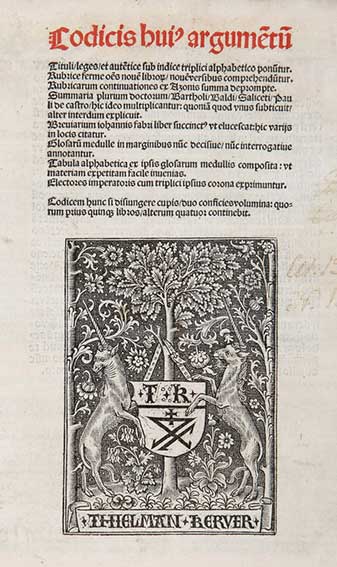 Codicis huiꝰ argumẽtũ
Tituli/leges/et autẽtice sub indice triplici alphabetico ponũtur.
Rubrice ferme oẽs nouẽ libroꝝ/nouẽ versibus comprehendũtur.
Rubricarum continuationes ex Azonis summa deprompte.
Summaria plurum doctorum/Bartholi/Baldi/Saliceti/Pau
li de castro/hic ideo multiplicantur: quonã quod vnus subticuit/
alter interdum explicuit.
Breuiarium iohannis fabri liber succinctꝰ vt elucescat: hic varijs
in locis citatur.
Glosarũ medulle in marginibus nũc decisiue/nũc interrogatiue
annotantur.
Tabula alphabetica ex ipsis glosarum medullis composita: vt
materiam expetitam facile inuenias.
Electores imperatoris cum triplici ipsius corona exprimuntur.
Codicem hunc si disiungere cupis/duo conficies volumina: quo-
rum prius quinqꝫ libros/alterum quatuor continebit.
T R
THIELMAN KERVER